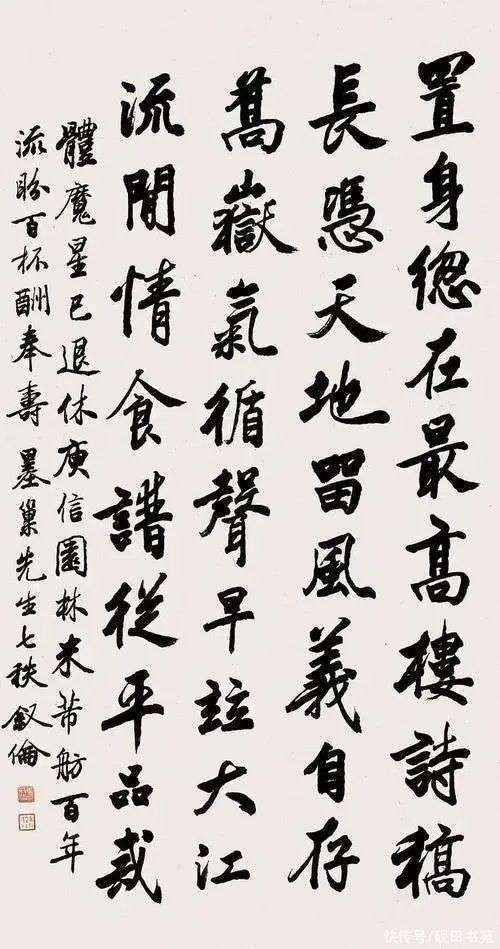 置身總在最高樓詩稿
長憑天地留風義自存
嵩嶽氣循聲早竝大江
流閒情食譜從平品戒
體魔星已退休庾信園林米芾舫百年
流盼百杯酬奉壽墨巢先生七秩敘倫
快传号/砚田书苑